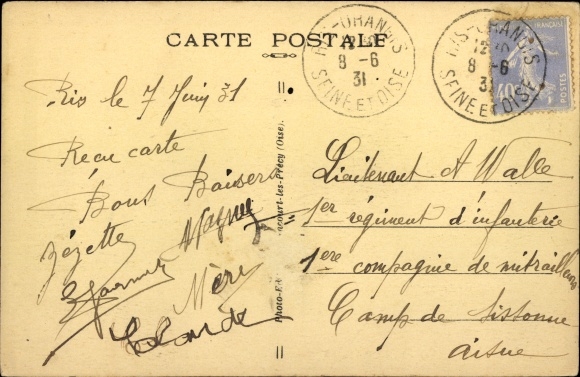 CARTE POSTALE
RIS-ORANGIS
12
8 -6
31
SEINE ET OISE
RIS-ORANGIS
12
8 -6
31
SEINE ET OISE
FRANÇAISE
40
POSTES
Ris le 7 Juin 31
Reçu carte
Bons Baisers
Zézette
Mère
Photo-Ed. court-les-Précy (Oise).
Lieutenant A Walle
1er régiment d'infanterie
1ere compagnie de mitrailleuses
Camp de Sissonne
Aisne